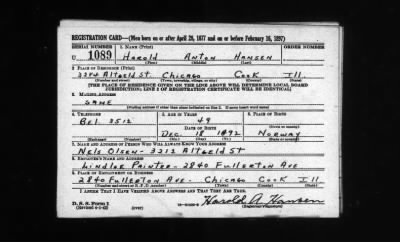 REGISTRATION CARD—(Men born on or after April 28, 1877 and on or before February 16, 1897)
SERIAL NUMBER 1. NAME (Print) ORDER NUMBER
U 1089 HAROLD ANTON HANSEN
(First) (Middle) (Last)
2. PLACE OF RESIDENCE (Print)
ALTGELD ST. CHICAGO COOK ILL.
(Number and street) (Town, township, village, or city) (County) (State)
[THE PLACE OF RESIDENCE GIVEN ON THE LINE ABOVE WILL DETERMINE LOCAL BOARD
JURISDICTION; LINE 2 OF REGISTRATION CERTIFICATE WILL BE IDENTICAL]
3. MAILING ADDRESS
SAME
[Mailing address if other than place indicated on line 2. If same insert word same]
4. TELEPHONE 5. AGE IN YEARS 6. PLACE OF BIRTH
BEL. 3512 49
DATE OF BIRTH (Town or county)
DEC. 18 1892 NORWAY
(Exchange) (Number) (Mo.) (Day) (Yr.) (State or country)
7. NAME AND ADDRESS OF PERSON WHO WILL ALWAYS KNOW YOUR ADDRESS
NELS OLSEN - 3212 ALTGELD ST
8. EMPLOYER'S NAME AND ADDRESS
PRINTER - 2840 FULLERTON AVE
9. PLACE OF EMPLOYMENT OR BUSINESS
2840 FULLERTON AVE. CHICAGO COOK ILL
(Number and street or R. F. D. number) (Town) (County) (State)
I AFFIRM THAT I HAVE VERIFIED ABOVE ANSWERS AND THAT THEY ARE TRUE.
D. S. S. Form 1
(Revised 4-1-42) (over) Harold A. Hansen
(Registrant's signature)